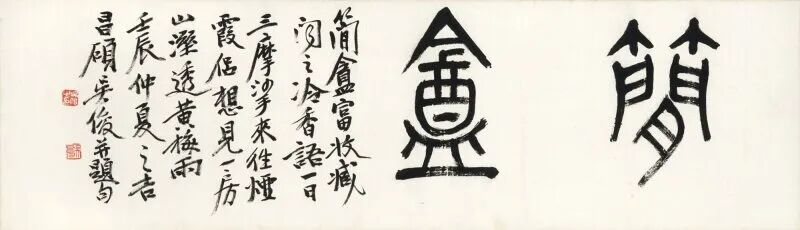 簡盦
簡盦富收藏
閟之冷香語一日
三摩挲來往煙
霞侶想見一房
山溼透黃梅雨
壬辰仲夏之吉
昌碩吳俊并題句